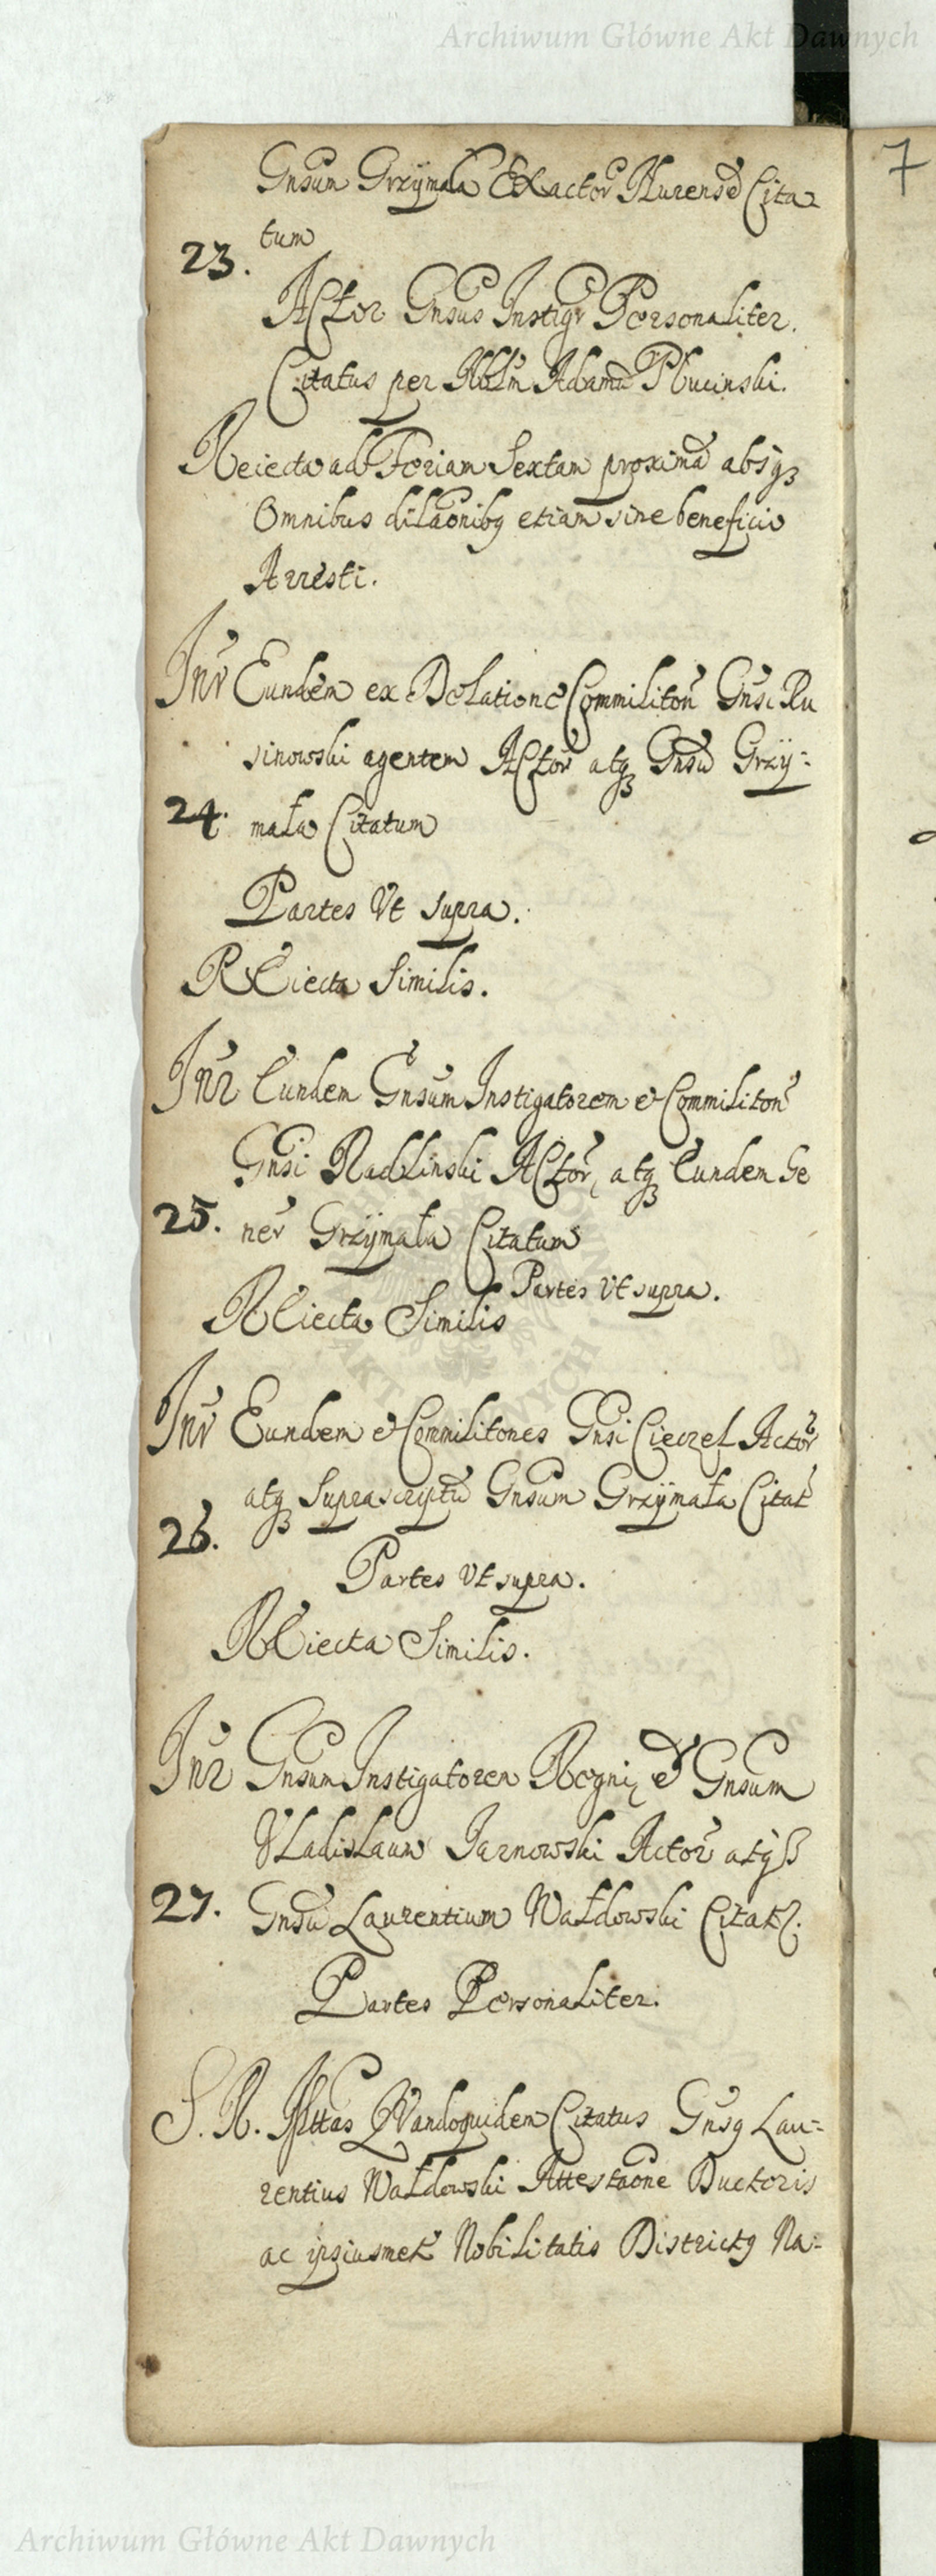 Archiwum Główne Akt Dawnych
7
Gnsum Grzÿmala Exactor Nurensē Cita
tum
23.
Actor Gnsus Instigr Personaliter.
Citatus per Nblm Adamū Plucinski.
Reiecta ad Feriam Sextam proximā absqz
Omnibus dilaõnibq etiam sine beneficio
Arresti.
Inr Eundem ex Delatione Commiliton Gnsi Ru
sinowski agentem Actor atqz Gnsū Grzÿ:
24. mała Citatum
Partes Vt supra.
Reiecta Similis.
Inr Eundem Gnsum Instigatorem et Commiliton
Gnsi Radlinski Actor, atqz Eundem Ge
25. ner Grzÿmała Citatum
Partes Vt supra.
Reiecta Similis
Inr Eundem et Commilitones Gnsi Cieczel Actor
atqz Suprascriptū Gnsum Grzÿmała Citat
26.
Partes Vt supra.
Reiecta Similis.
Inr Gnsum Instigatorem Regni, et Gnsum
Vladislaum Jarnowski Actor atqz
27. Gnsū Laurentium Wałdowski Citat.
Partes Personaliter.
S. R. Mttas Quandoquidem Citatus Gnsq Lau:
rentius Wałdowski Attestaõne Ductoris
ac ipsiusmet Nobilitatis Districtq Na:
Archiwum Główne Akt Dawnych